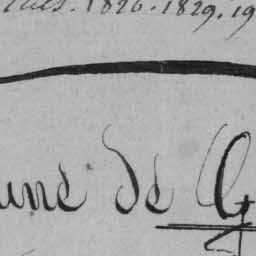 1826. 1829. 19
une de G